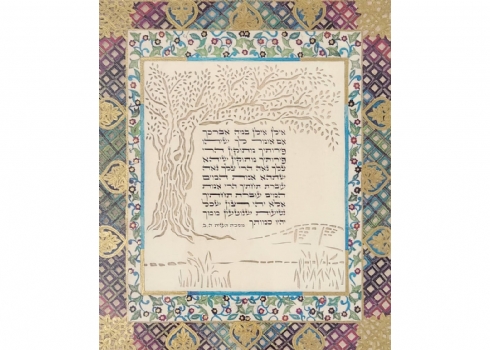 אילן אילן במה אברכך
אם אומר לך שיהו
פירותיך מתוקין הרי
פירותיך מתוקין שיהא
צלך נאה הרי צלך נאה
שתהא אמת המים
עוברת תחתיך הרי אמת
המים עוברת תחתיך
אלא יהי רצון שכל
נטיעות שנוטעין ממך
יהיו כמותך
מסכת תענית ה,ב